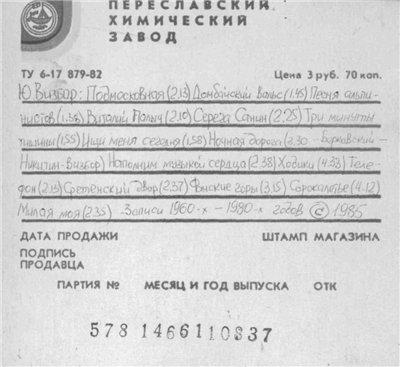 ПЕРЕСЛАВСКИЙ
ХИМИЧЕСКИЙ
ЗАВОД
ТУ 6-17 879-82 Цена 3 руб. 70 коп.
Ю.Визбор: Подмосковная (2.13) Домбайский вальс (1.45) Песня альпи-
нистов (1.38) Виталий Палыч (2.10) Серега Санин (2.25) Три минуты
тишины (1.55) Ищи меня сегодня (1.58) Ночная дорога (2.30 - Берковский -
Никитин-Визбор) Наполним музыкой сердца (2.38) Ходики (4.33) Теле-
фон (2.13) Сретенский двор (2.37) Фанские горы (3.15) Сорокалетье (4.12)
Милая моя (2.35) Записи 1960-х - 1980-х годов © 1985
ДАТА ПРОДАЖИ ШТАМП МАГАЗИНА
ПОДПИСЬ
ПРОДАВЦА
ПАРТИЯ № МЕСЯЦ И ГОД ВЫПУСКА ОТК
578 1466110837